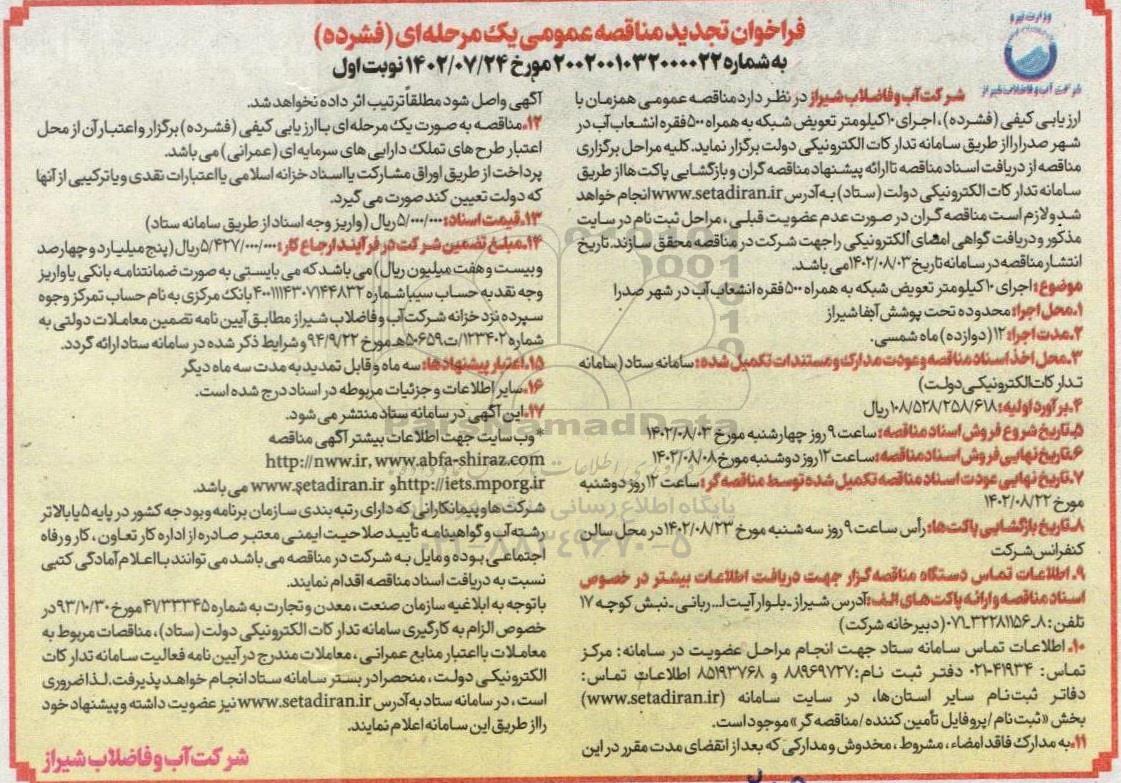 وزارت نیرو
شرکت آب و فاضلاب شیراز
فراخوان تجدید مناقصه عمومی یک مرحله‌ای (فشرده)
به شماره ۲۰۰۲۰۰۱۰۳۲۰۰۰۰۲۲ مورخ ۱۴۰۲/۰۷/۲۴ نوبت اول
شرکت آب و فاضلاب شیراز در نظر دارد مناقصه عمومی همزمان با
ارزیابی کیفی (فشرده)، اجرای ۱۰ کیلومتر تعویض شبکه به همراه ۵۰۰ فقره انشعاب آب در
شهر صدرا را از طریق سامانه تدارکات الکترونیکی دولت برگزار نماید. کلیه مراحل برگزاری
مناقصه از دریافت اسناد مناقصه تا ارائه پیشنهاد مناقصه گران و بازگشایی پاکت‌ها از طریق
سامانه تدارکات الکترونیکی دولت (ستاد) به آدرس www.setadiran.ir انجام خواهد
شد و لازم است مناقصه گران در صورت عدم عضویت قبلی، مراحل ثبت نام در سایت
مذکور و دریافت گواهی امضای الکترونیکی را جهت شرکت در مناقصه محقق سازند. تاریخ
انتشار مناقصه در سامانه تاریخ ۱۴۰۲/۰۸/۰۳ می باشد.
موضوع: اجرای ۱۰ کیلومتر تعویض شبکه به همراه ۵۰۰ فقره انشعاب آب در شهر صدرا
۱.محل اجرا: محدوده تحت پوشش آبفا شیراز
۲.مدت اجرا: ۱۲ (دوازده) ماه شمسی.
۳.محل اخذ اسناد مناقصه و عودت مدارک و مستندات تکمیل شده: سامانه ستاد (سامانه
تدارکات الکترونیکی دولت)
۴.برآورد اولیه: ۱۰۸/۵۲۸/۲۵۸/۶۱۸ ریال
۵.تاریخ شروع فروش اسناد مناقصه: ساعت ۹ روز چهارشنبه مورخ ۱۴۰۲/۰۸/۰۳
۶.تاریخ نهایی فروش اسناد مناقصه: ساعت ۱۲ روز دوشنبه مورخ ۱۴۰۲/۰۸/۰۸
۷.تاریخ نهایی عودت اسناد مناقصه تکمیل شده توسط مناقصه گر: ساعت ۱۲ روز دوشنبه
مورخ ۱۴۰۲/۰۸/۲۲
۸.تاریخ بازگشایی پاکت‌ها: رأس ساعت ۹ روز سه شنبه مورخ ۱۴۰۲/۰۸/۲۳ در محل سالن
کنفرانس شرکت
۹.اطلاعات تماس دستگاه مناقصه گزار جهت دریافت اطلاعات بیشتر در خصوص
اسناد مناقصه و ارائه پاکت‌های الف: آدرس شیراز ـ بلوار آیت ا... ربانی ـ نبش کوچه ۱۷
تلفن: ۸ـ۳۲۲۸۱۱۵۶ـ۰۷۱ (دبیرخانه شرکت)
۱۰.اطلاعات تماس سامانه ستاد جهت انجام مراحل عضویت در سامانه: مرکز
تماس: ۴۱۹۳۴-۰۲۱ دفتر ثبت نام: ۸۸۹۶۹۷۳۷ و ۸۵۱۹۳۷۶۸ اطلاعات تماس:
دفاتر ثبت‌نام سایر استان‌ها، در سایت سامانه (www.setadiran.ir)
بخش «ثبت نام/پروفایل تأمین کننده/مناقصه گر» موجود است.
۱۱.به مدارک فاقد امضاء، مشروط، مخدوش و مدارکی که بعد از انقضای مدت مقرر در این
آگهی واصل شود مطلقاً ترتیب اثر داده نخواهد شد.
۱۲.مناقصه به صورت یک مرحله‌ای با ارزیابی کیفی (فشرده) برگزار و اعتبار آن از محل
اعتبار طرح های تملک دارایی های سرمایه ای (عمرانی) می باشد.
پرداخت از طریق اوراق مشارکت یا اسناد خزانه اسلامی یا اعتبارات نقدی و یا ترکیبی از آنها
که دولت تعیین کند صورت می گیرد.
۱۳.قیمت اسناد: ۵/۰۰۰/۰۰۰ ریال (واریز وجه اسناد از طریق سامانه ستاد)
۱۴.مبلغ تضمین شرکت در فرآیند ارجاع کار: ۵/۴۲۷/۰۰۰/۰۰۰ ریال (پنج میلیارد و چهارصد
و بیست و هفت میلیون ریال) می باشد که می بایستی به صورت ضمانتنامه بانکی یا واریز
وجه نقد به حساب سیبا شماره ۴۰۰۱۱۱۴۳۰۷۱۴۴۸۳۲ بانک مرکزی به نام حساب تمرکز وجوه
سپرده نزد خزانه شرکت آب و فاضلاب شیراز مطابق آیین نامه تضمین معاملات دولتی به
شماره ۱۲۳۴۰۲/ت۵۰۶۵۹هـ مورخ ۹۴/۹/۲۲ و شرایط ذکر شده در سامانه ستاد ارائه گردد.
۱۵.اعتبار پیشنهادها: سه ماه و قابل تمدید به مدت سه ماه دیگر
۱۶.سایر اطلاعات و جزئیات مربوطه در اسناد درج شده است.
۱۷.این آگهی در سامانه ستاد منتشر می شود.
* وب سایت جهت اطلاعات بیشتر آگهی مناقصه
http://nww.ir, www.abfa-shiraz.com
http://iets.mporg.ir و www.setadiran.ir می باشد.
شرکت‌ها و پیمانکارانی که دارای رتبه بندی سازمان برنامه و بودجه کشور در پایه ۵ یا بالاتر
رشته آب و گواهینامه تأیید صلاحیت ایمنی معتبر صادره از اداره کار تعاون، کار و رفاه
اجتماعی بوده و مایل به شرکت در مناقصه می باشد می توانند با اعلام آمادگی کتبی
نسبت به دریافت اسناد مناقصه اقدام نمایند.
با توجه به ابلاغیه سازمان صنعت، معدن و تجارت به شماره ۴۷۳۳۳۴۵ مورخ ۹۳/۱۰/۳۰ در
خصوص الزام به کارگیری سامانه تدارکات الکترونیکی دولت (ستاد)، مناقصات مربوط به
معاملات با اعتبار منابع عمرانی، معاملات مندرج در آیین نامه فعالیت سامانه تدارکات
الکترونیکی دولت، منحصرا در بستر سامانه ستاد انجام خواهد پذیرفت. لذا ضروری
است، در سامانه ستاد به آدرس www.setadiran.ir نیز عضویت داشته و پیشنهاد خود
را از طریق این سامانه اعلام نمایند.
شرکت آب و فاضلاب شیراز
ParsNamadData
پایگاه اطلاع رسانی